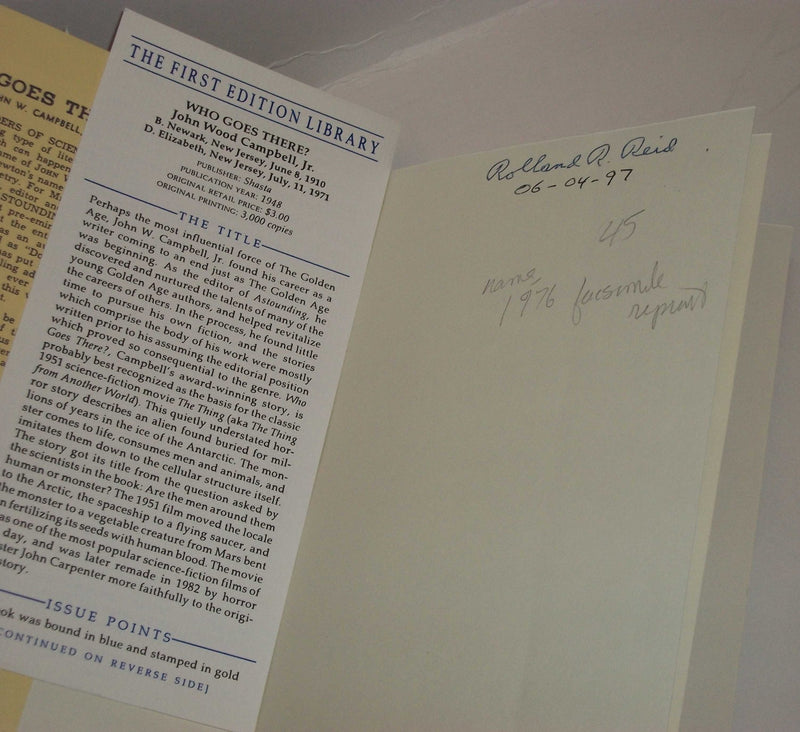 GOES TH
HN W. CAMPBELL,
ERS OF SCIEN
g type of lite
ch can happen
me of JOHN
ewton's name
etry. For M
editor an
STOUNDIN
pre-emin
t the ent
as an a
as "Do
as put
ling ad
ever
this
t.
be
of
THE FIRST EDITION LIBRARY
WHO GOES THERE?
John Wood Campbell, Jr.
B. Newark, New Jersey, June 8, 1910
D. Elizabeth, New Jersey, July, 11, 1971
PUBLISHER: Shasta
PUBLICATION YEAR: 1948
ORIGINAL RETAIL PRICE: $3.00
ORIGINAL PRINTING: 3,000 copies
THE TITLE
Perhaps the most influential force of The Golden
Age, John W. Campbell, Jr. found his career as a
writer coming to an end just as The Golden Age
was beginning. As the editor of Astounding, he
discovered and nurtured the talents of many of the
young Golden Age authors, and helped revitalize
the careers of others. In the process, he found little
time to pursue his own fiction, and the stories
which comprise the body of his work were mostly
written prior to his assuming the editorial position
which proved so consequential to the genre. Who
Goes There?, Campbell's award-winning story, is
probably best recognized as the basis for the classic
1951 science-fiction movie The Thing (aka The Thing
from Another World). This quietly understated hor-
ror story describes an alien found buried for mil-
lions of years in the ice of the Antarctic. The mon-
ster comes to life, consumes men and animals, and
imitates them down to the cellular structure itself.
The story got its title from the question asked by
the scientists in the book: Are the men around them
human or monster? The 1951 film moved the locale
to the Arctic, the spaceship to a flying saucer, and
the monster to a vegetable creature from Mars bent
n fertilizing its seeds with human blood. The movie
as one of the most popular science-fiction films of
day, and was later remade in 1982 by horror
ster John Carpenter more faithfully to the origi-
story.
ISSUE POINTS
ok was bound in blue and stamped in gold
CONTINUED ON REVERSE SIDE]
Rolland R. Reid
06-04-97
45
name
1976 facsimile
reprint